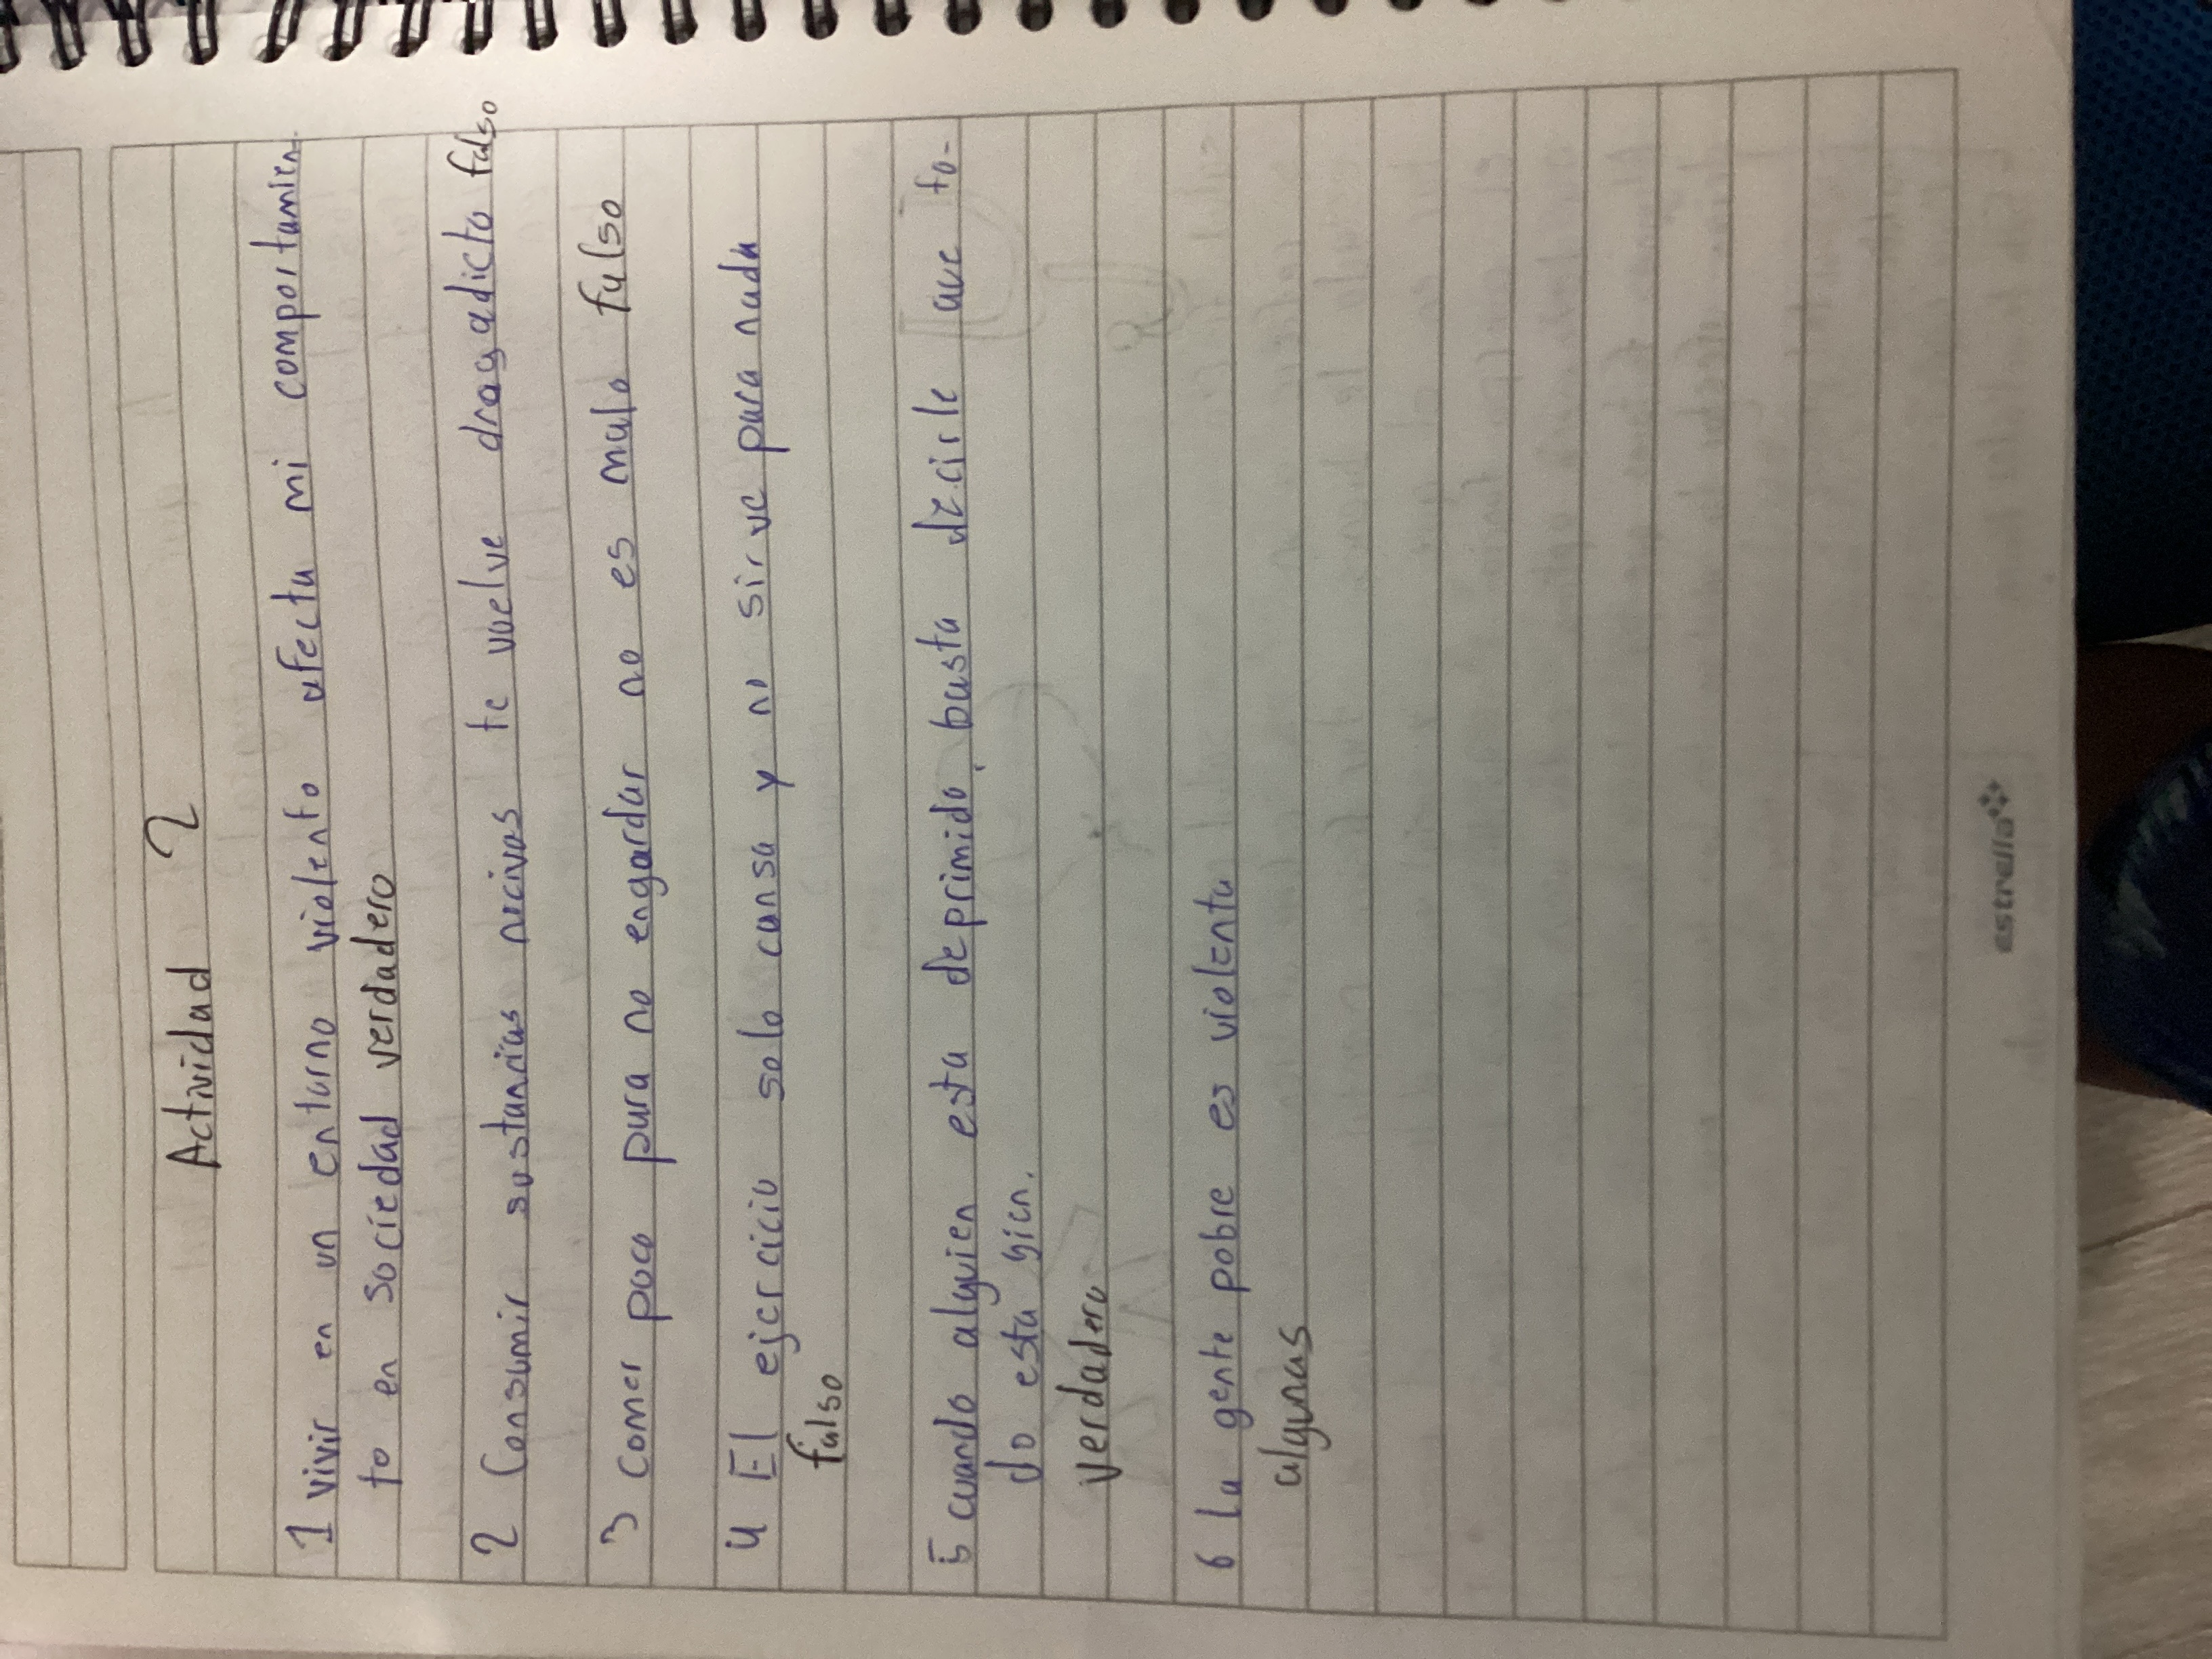 Actividad 2
1 vivir en un entorno violento afecta mi comportamien-
to en sociedad verdadero
2 Consumir sustancias nocivas te vuelve drogadicto falso
3 comer poco para no engardar no es malo falso
4 El ejercicio solo cansa y no sirve para nada
falso
5 cuando alguien esta deprimido, basta decirle que to-
do esta bien.
verdadero
6 la gente pobre es violenta
algunas
estrella